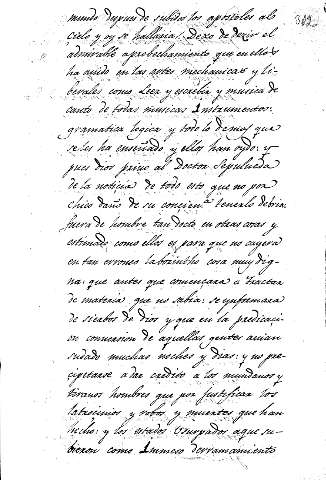 302
mundo despues de subidos los apostoles al
cielo y oy se hallaria. Dexo de dezir el
admirable aprobechamiento que en ellos
ha auido en las artes mechanicas y li-
berales como Leer y escrebir y musica de
canto de todas musicas Instrumentos:
gramatica logica y todo lo demas que
se les ha enseñado y ellos han oydo: y
pues dios privo al Doctor Sepulueda
de la noticia de todo esto que no por
chico daño de su concien^a tenerlo debria
fuera de hombre tan docto en otras cosas y
estimado como el lo es para que no cayera
en tan enorme laborintho cosa muy dig-
na: que antes que començara a tractar
de materia que no sabia: se ynformara
de sierbos de Dios y que en la predicaçi-
on conuersion de aquellas gentes auian
sudado muchas noches y dias: y no pre-
cipitarse a dar credito a los mundanos y
tiranos hombres que por justificar los
latrocinios y robos, y muertes que han
hecho: y los estados Usurpados a que su-
bieron como Immenso derramamiento